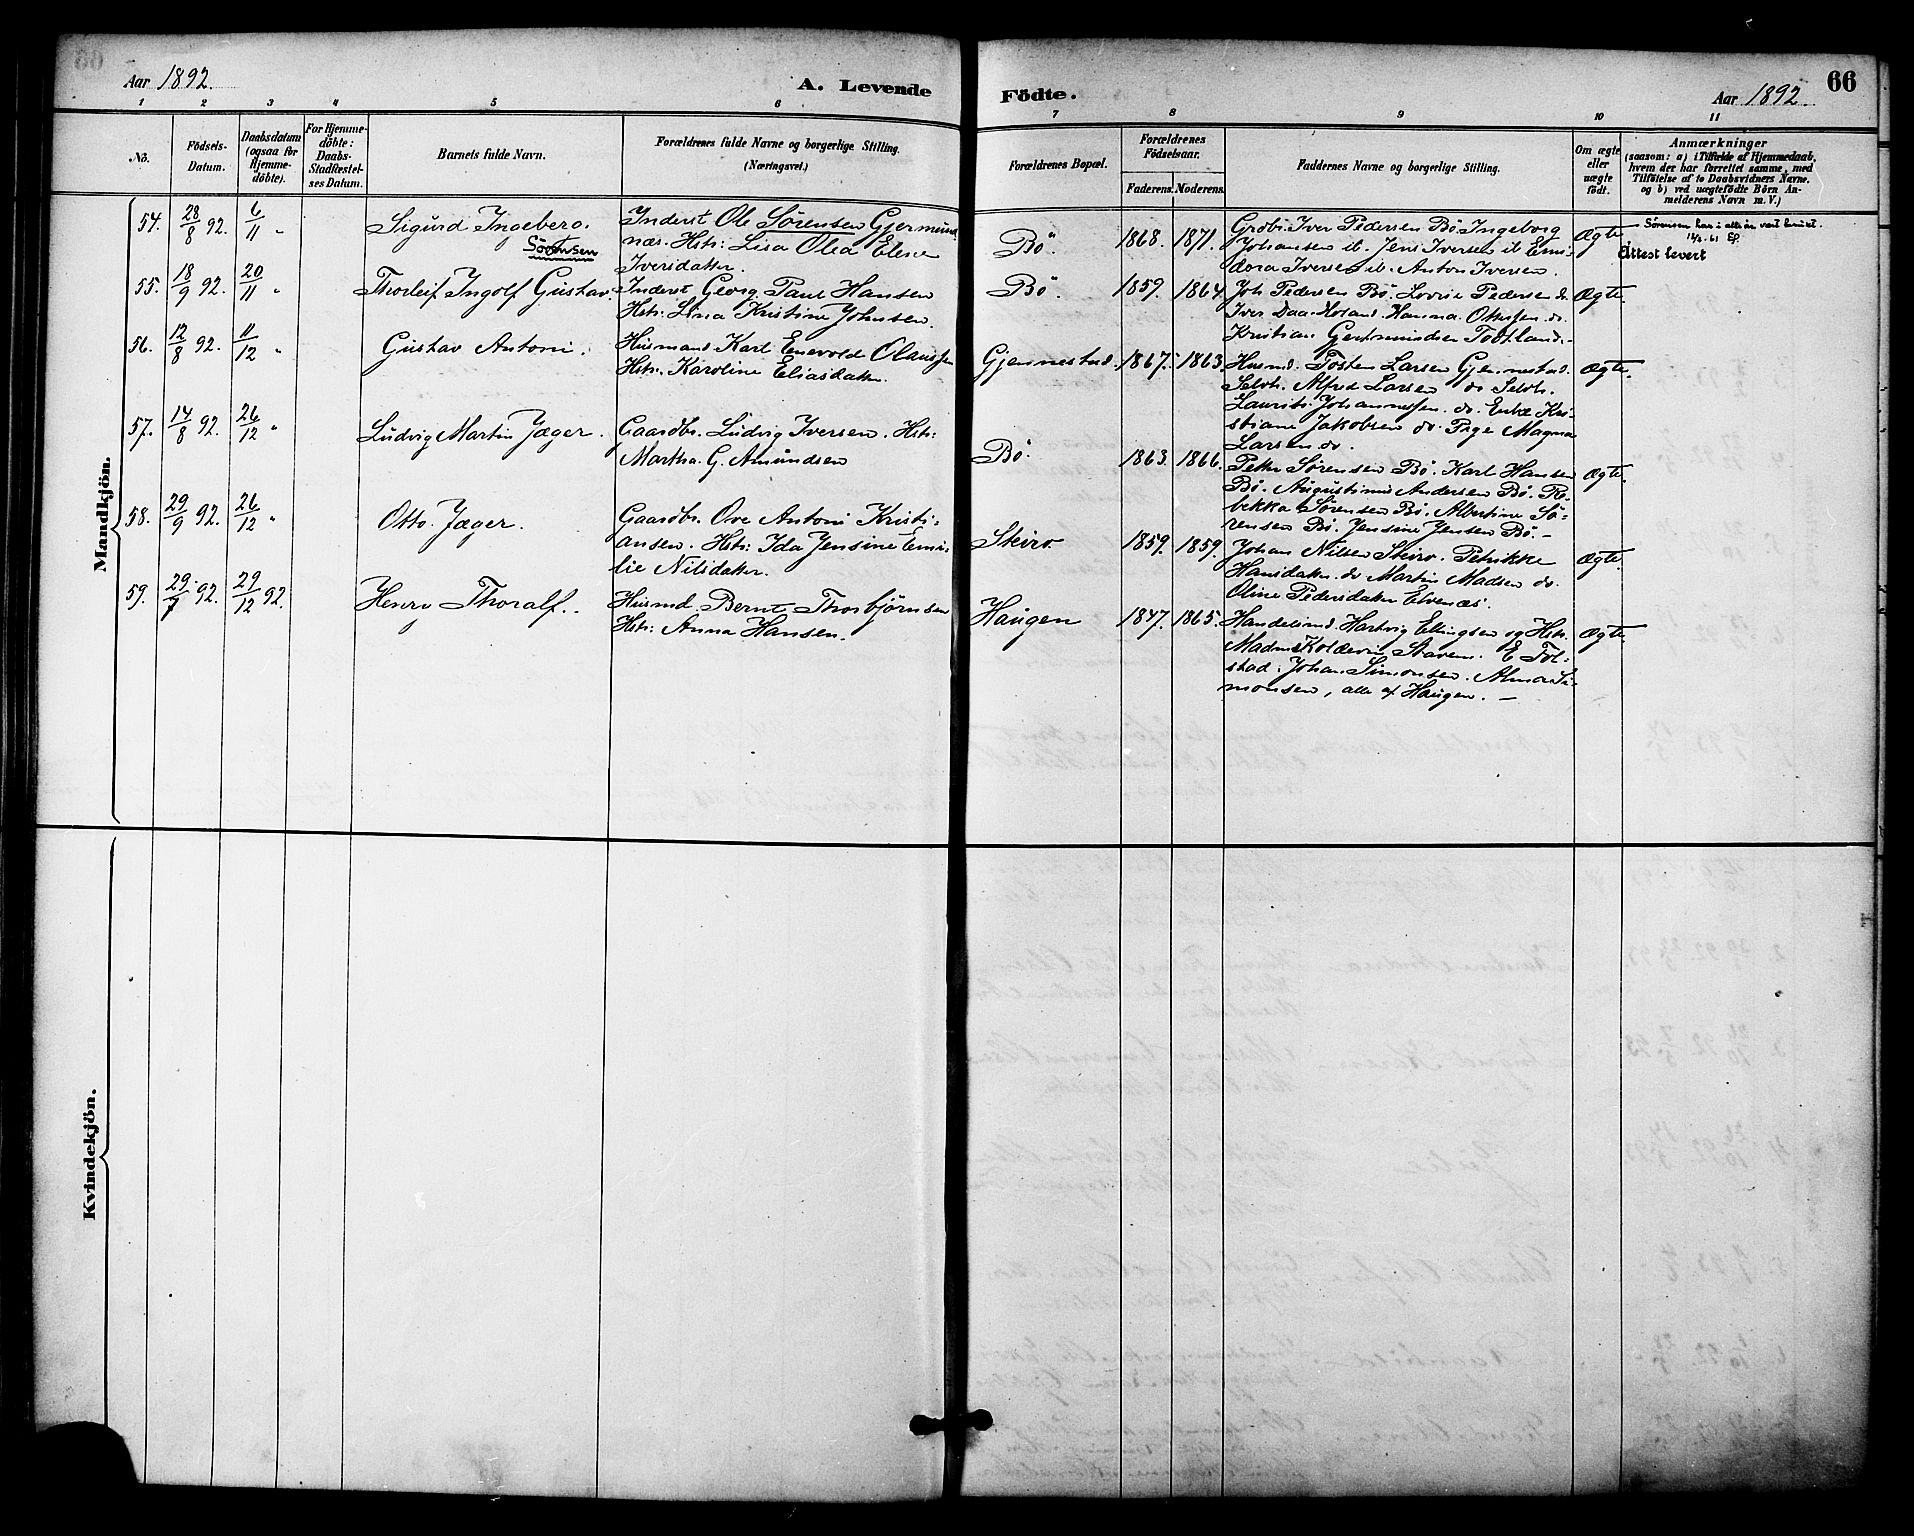 Aar 1892.
A. Levende
Födte.
Aar 1892.
66
1 2 3 4 5 6 7 8 9 10 11
No.
Födsels-
Datum.
Daabsdatum
(ogsaa for
Hjemme-
döbte).
For Hjemme-
döbte:
Daabs-
Stadfæstel-
ses Datum.
Barnets fulde Navn.
Forældrenes fulde Navne og borgerlige Stilling.
(Næringsvei.)
Forældrenes Bopæl.
Forældrenes
Födselsaar.
Faderens. Moderens.
Faddernes Navne og borgerlige Stilling.
Om ægte
eller
uægte
født.
Anmærkninger
(saasom: a) i Tilfælde af Hjemmedaab,
hvem der har forrettet samme, med
Tilföielse af to Daabsvidners Navne,
og b) ved uægtefödte Börn An-
melderens Navn m. V.)
Mandkjön.
54. 28/8 92. 6/11 "
Sigurd Ingeberg.
Sörensen
Inderst Ole Sörensen Gjermund
næs. Hstr: Lisa Olea Elene
Iversdatter.
Bö.
1868. 1871.
Grbr. Iver Pedersen Bö. Ingeborg
Johansen ib. Jens Iversen ib Emi-
dora Iversen ib. Anton Iversen.
Ægte
Sørensen har i alle år vært brukt.
Attest levert
55. 18/9 92. 20/11 "
Thorleif Ingolf Gustav.
Inderst Georg Paul Hansen
Hstr. Lina Kristine Johnsen.
Bö.
1859. 1864.
Joh. Pedersen Bö. Lovise Pedersen do
Iver Daa. Hanna Ottesen do.
Kristian
Ægte.
56. 12/8 92. 11/12 "
Gustav Antoni.
Husmand Karl Enevold Olaussen
Hstr. Karoline Eliasdatter.
Gjennestad.
1867. 1863.
Husmd. Tosten Larsen Gjennestad.
Selvb. Alfred Larsen do Selvb.
Laurits Johannessen. do. Enke Kri-
stiane Jakobsen do. Pige Magna
Larsen do.
Ægte.
57. 14/8 92. 26/12 "
Ludvig Martin Jæger.
Gaardbr. Ludvig Iversen. Hstr:
Martha. G. Amundsen
Bö.
1863. 1866.
Peter Sörensen Bö. Karl Hansen
Bö. Augustinus Andersen Bö. Re-
bekka Sörensen Bö. Albertine Sö-
rensen Bö. Jensine Jensen Bö.
Ægte.
58. 29/9 92. 26/12 "
Otto Jæger.
Gaardbr. Ove Antoni Kristi-
ansen. Hstr: Ida Jensine Emi-
lie Nilsdatter.
Steiro.
1859. 1859.
Johan Nilsen Steiro. Petrikke
Hansdatter do Martin Madsen do.
Oline Pedersdatter Elvenæs.
Ægte.
59. 29/7 92. 29/12 92.
Henry Thoralf.
Husmd. Bernt Thorbjörnsen
Hstr: Anna Hansen.
Haugen
1847. 1865.
Handelsmd. Hartvig Ellingsen og Hstr.
Madme Koldevin Staven. E. Tol-
stad. Johan Simonsen. Alma Si-
monsen, alle af Haugen.
Ægte.
Kvindekjön.